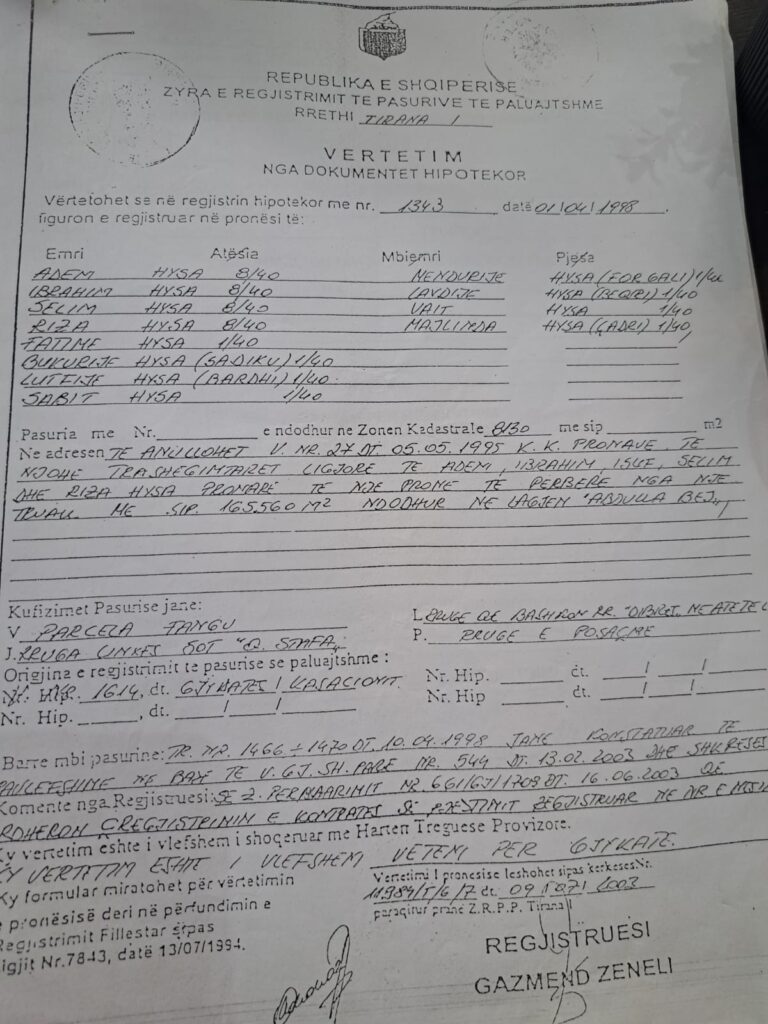 REPUBLIKA E SHQIPERISE
ZYRA E REGJISTRIMIT TE PASURIVE TE PALUAJTSHME
RRETHI TIRANA 1
VERTETIM
NGA DOKUMENTET HIPOTEKOR
Vërtetohet se në regjistrin hipotekor me nr. 1343 datë 01/04/1998.
figuron e regjistruar në pronësi të:
Emri Atësia Mbiemri Pjesa
ADEM HYSA 8/40 NENDURIJE HYSA (FORGALI) 1/40
IBRAHIM HYSA 8/40 LAVDIJE HYSA (BEQRI) 1/40
SELIM HYSA 8/40 VAIT HYSA 1/40
RIZA HYSA 8/40 MAJLINDA HYSA (ÇADRI) 1/40
FATIME HYSA 1/40
BUKURIJE HYSA (SADIKU) 1/40
LUTFIJE HYSA (BARDHI) 1/40
SABIT HYSA 1/40
Pasuria me Nr. e ndodhur ne Zonen Kadastrale 8130 me sip m2
Ne adresen TE ANULLOHET V. NR. 27 DT. 05.05.1995 K.K. PRONAVE. TE
NJOHE TRASHEGIMTARET LIGJORE TE ADEM, IBRAHIM, ISUF, SELIM
DHE RIZA HYSA PRONARE TE NJE PRONE TE PERBERE NGA NJE
TRUALL ME SIP. 165.560 M2 NDODHUR NE LAGJEN "ABDULLA BEJ"
Kufizimet Pasurise jane:
V PARCELA TANGU L RRUGE QE BASHKON RR. "DIBRES"
J. RRUGA UNAZES SOT "Q. STAFA" P. RRUGE E POSAÇME
Origjina e regjistrimit te pasurise se paluajtshme :
NR. 1614, dt. GJYKATES KASACIONIT. Nr. Hip. dt. / /
Nr. Hip. , dt. / / Nr. Hip dt. / /
Barre mbi pasurine: TR. NR. 1466 ÷ 1470 DT. 10.04.1998 JANE KONSTATUAR TE
PAVLEFSHME ME BAZE TE V. GJ. SH. PARE NR. 549 DT. 13.02.2003 DHE SHKRESES
Komente nga Regjistruesi: SE Z. PERMBARIMIT NR 661/GJ/1708 DT. 16.06.2003 QE
URDHERON ÇREGJISTRIMIN E KONTRATES SE PJESTIMIT REGJISTRUAR ME NR E
Ky vertetim eshte i vlefshem i shoqeruar me Harten Treguese Provizore.
KY VERTETIM ESHTE I VLEFSHEM VETEM PER GJYKATE.
Ky formular miratohet për vërtetimin
e pronësisë deri në përfundimin e
Regjistrimit Fillestar sipas
ligjit Nr.7843, datë 13/07/1994.
Vertetimi I pronesise leshohet sipas kerkeses Nr.
11984/5/6/7 dt. 09/07/2003
paraqitur prane Z.R.P.P. Tirana 1
REGJISTRUESI
GAZMEND ZENELI